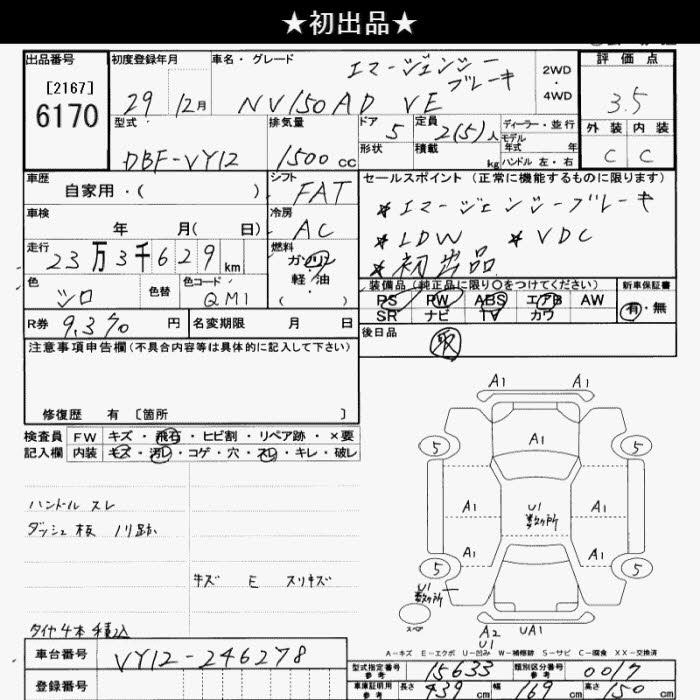 ★初出品★
出品番号
[2167]
6170
初度登録年月
29年12月
車名・グレード
エマージェンシー
ブレーキ
NV150AD VE
2WD
・
4WD
評価点
3.5
外装 内装
C C
型式
DBF-VY12
排気量
1500cc
ドア
5
形状
定員
2(5)人
積載
kg
ディーラー・並行
モデル
年式 年
ハンドル 左・右
車歴
自家用・( )
シフト
FAT
セールスポイント (正常に機能するものに限ります)
*エマージェンシーブレーキ
*LDW *VDC
*初出品
車検
年 月( 日)
冷房
AC
走行
23万3千629km
燃料
ガソリン
軽油
( )
色
シロ
色替
色コード
QM1
装備品 (純正品に限り○をつけてください)
PS PW ABS エアB AW
SR ナビ TV カワ
新車保証書
有・無
R券 9,370円
名変期限 月 日
後日品
取
注意事項申告欄(不具合内容等は具体的に記入して下さい)
修復歴 有 〔箇所 〕
検査員
記入欄
FW キズ・飛石・ヒビ割・リペア跡・×要
内装 キズ・汚レ・コゲ・穴・スレ・キレ・破レ
ハンドル スレ
ダッシュ板 ノリ跡
キズ E スリキズ
タイヤ4本積込
A1 A1
A1
5 5
A1 U1 A1
数ヶ所
A1 A1
5 5
U1
数ヶ所
スペア
A2 UA1
U1
A-キズ E-エクボ U-凹み W-補修跡 S-サビ C-腐食 XX-交換済
車台番号 VY12-246278
登録番号
型式指定番号
参考
15633
類別区分番号
参考
0017
車庫証明用
参考
長さ 439cm
幅 169cm
高さ 150cm